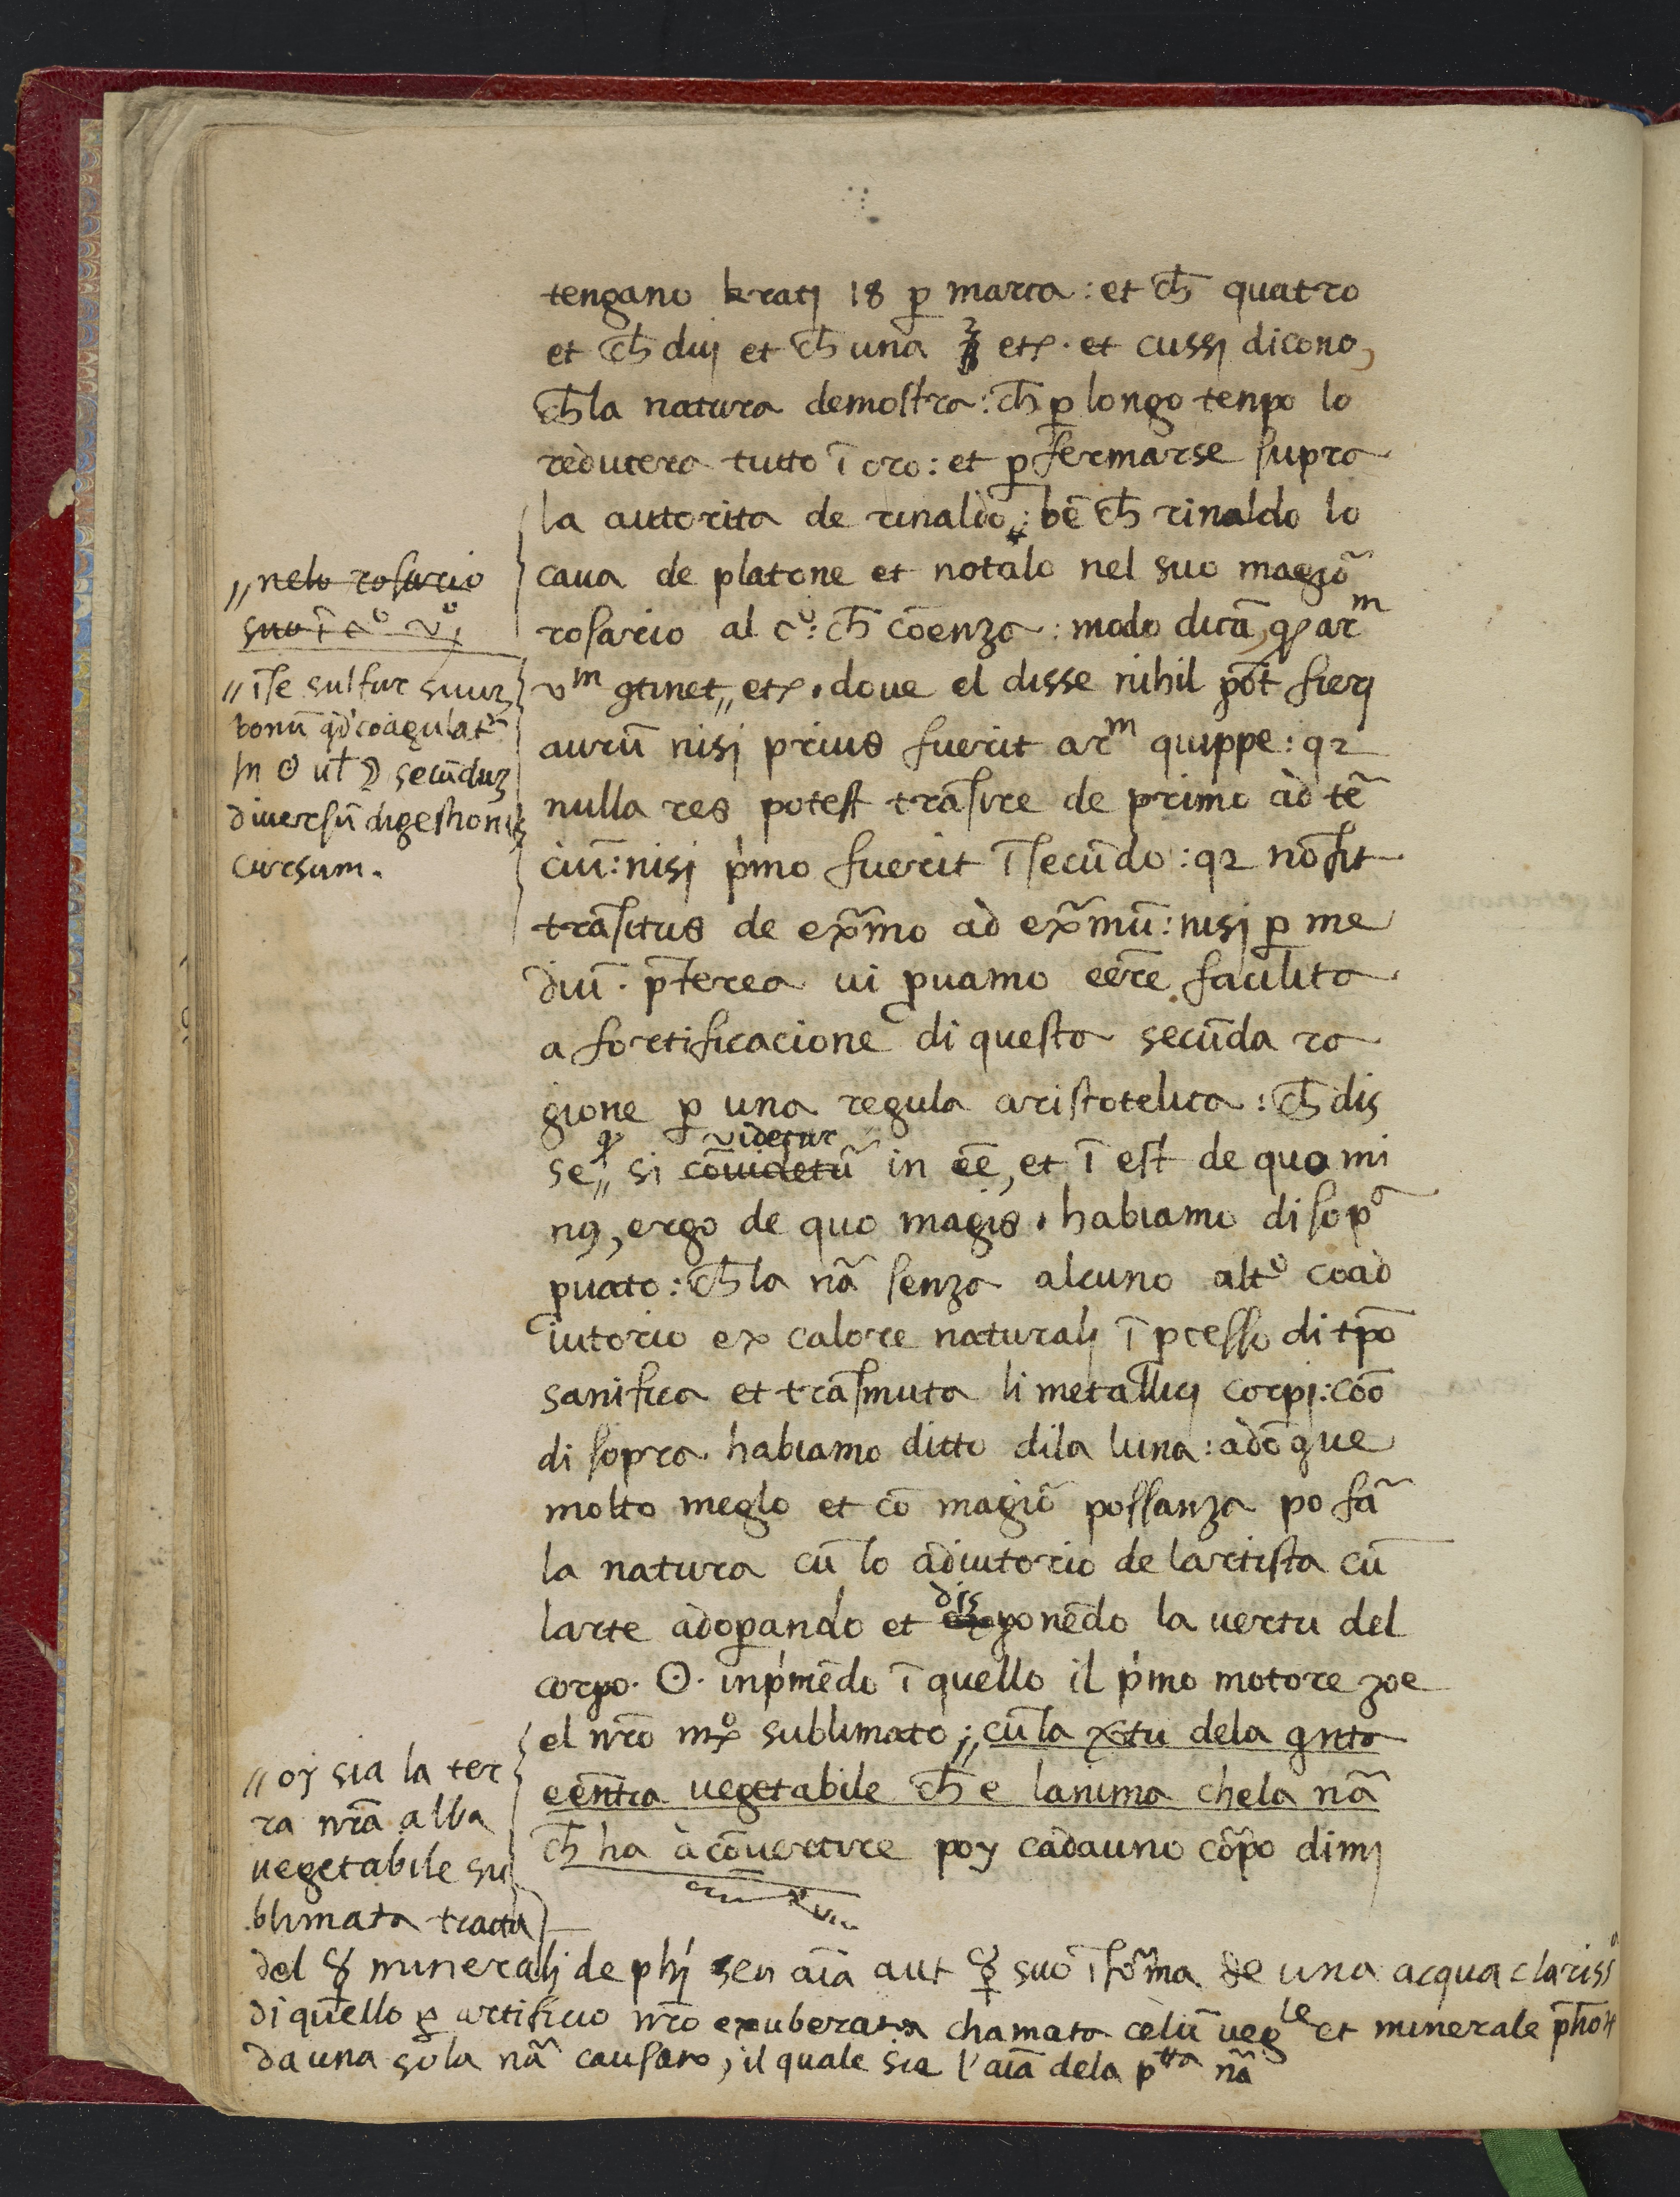 tengano kratj 18 p̱ marca: et ch̄ quatro
et ch̄ duj et ch̄ una ℥ etc. et cussj dicono,
ch̄ la natura demostra: ch̄ p̱ longo tenpo lo
reducera tutto ī oro: et p̱ fermarse supra
la autorita de rinaldo: bē ch̄ rinaldo lo
caua de platone et notālo nel suo magiō
rosario al cº: ch̄ cōenza: modo dicā, ꝙ arᵐ
vᵐ ꝯtinet,, etc. doue el disse nihil pōt fierj
aurū nisj prius fuerit arᵐ quippe: qꝛ
nulla res potest trāsire de primo ad tē
ciū: nisj pímo fuerit ī secūdo: qꝛ nō fit
trāsitus de ex̄mo ad ex̄mū: nisj p̱ me
diū. p̄terea ui ꝓuamo eēre facilita
a fortificacione di questa secūda ra
gione p̱ una regula aristotelica: ch̄ dis
se,, ꝙ si cōuidetū videtur in eē, et ī est de quo mi
nꝯ, ergo de quo magis. habiamo di sopª
ꝓuato: ch̄ la nā senza alcuno altº coad
iutorio ex calore naturalj ī ꝓcesso di tp̄o
sanifica et trāsmuta li metallicj corpj: cōo
di sopra habiamo ditto dila luna: adōque
molto meglo et cō magiō possanza po fā
la natura cū lo adiutorio de lartista cū
larte adop̱ando et disponēdo la uertu del
corpo. ☉. inpímēdo ī quello il pímo motore zoe
el nr̄o mxº sublimato;,, cū la x̄tu dela qnta
eēntia uegetabile ch̄ e lanima che la nā
ch̄ ha a cōuertire poy cadauno cōpo dimj
,,nelo rosario
suo ī cº vj
,,īse sulfur suuz
bonū qd coagulatᵘ
in ☉ ul ☽ secūduz
diuersū digestionis
cursum.
,,oy sia la ter
ra nr̄a alba
uegetabile su
blimata tracta
del ☿ mineralj de phj seu aīa aut ☿ suo ī foīma de una acqua clarissª
di quello p̱ artificio nr̄o exuberata chamata celū uegˡᵉ et minerale
da una sola nā causaro, il quale sia l'aīa dela pᵗᵗᵃ nā